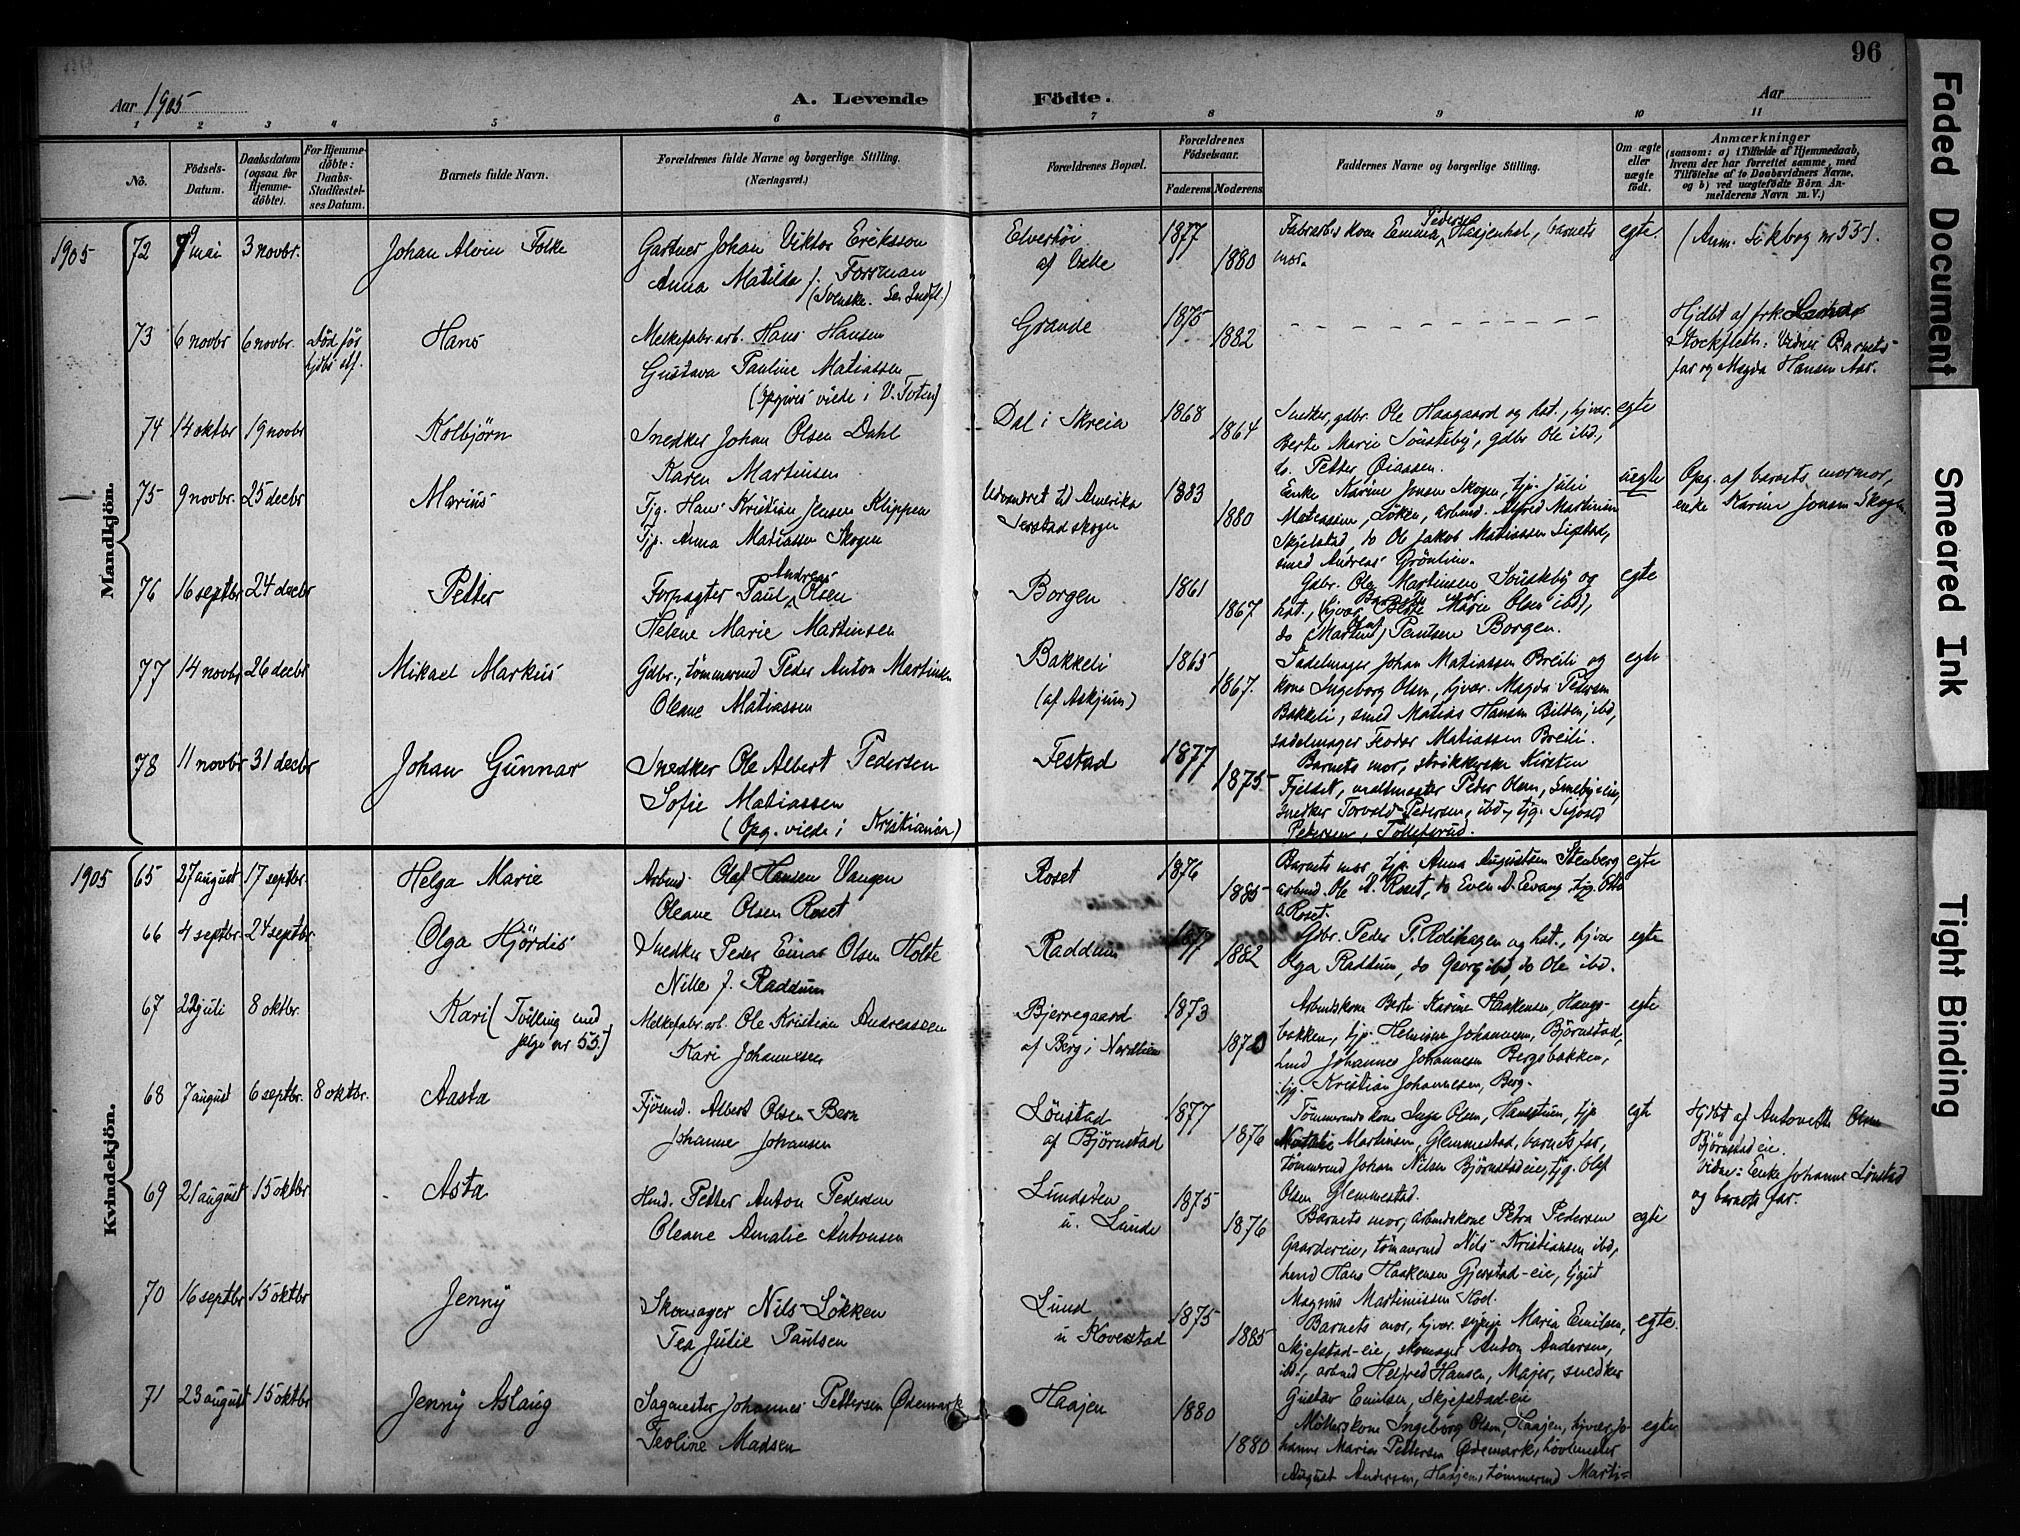 96
Aar 1905
A. Levende Födte.
Aar
1 2 3 4 5 6 7 8 9 10 11
No.
Födsels-Datum.
Daabsdatum (ogsaa for Hjemme-döbte).
For Hjemme-döbte: Daabs-Stadfæstel-ses Datum.
Barnets fulde Navn.
Forældrenes fulde Navne og borgerlige Stilling.
(Næringsvei.)
Forældrenes Bopæl.
Forældrenes Födselsaar.
Faderens Moderens
Faddernes Navne og borgerlige Stilling.
Om ægte eller uægte födt.
Anmærkninger
(saasom: a) i Tilfælde af Hjemmedaab,
hvem der har forrettet samme, med
Tilföielse af to Daabsvidners Navne,
og b) ved uægtefödte Börn An-
melderens Navn m. V.)
Mandkjön.
1905 72 9 mai 3 novbr. Johan Alvin Folke
Gartner Johan Viktor Eriksson
Anna Matilda f. Forsman
(Svenske. Se Indfl.)
Elvertöi
af Vælle
1877 1880
Fabrarb.s kone Emma Pedersen Haajenhol, barnets
mor.
egte.
(Anm. Likbog nr 55).
73 6 novbr 6 novbr. Död för hjdbs stf.
Hans
Melkefabr. arb. Hans Hansen
Gustava Pauline Matiassen
(Opgives viede i V. Toten)
Grande
1875 1882
Hjdbt af frk
Stockfleth: Vidner Barnets
far og Magda Hansen Aas.
74 14 oktbr 19 novbr Kolbjörn
Snedker Johan Olsen Dahl
Karen Martinsen
Dal i Skreia
1868 1864
Snedker, gdbr. Ole Haagaard og hst., hjvær.
Berte Marie Sönsteby, gdbr Ole ibd,
do. Petter Øiassen.
egte
75 9 novbr. 25 decbr Marius
Tjg. Hans Kristian Jensen Klippen
Tjp. Anna Matiassen Skogen
Udvandret til Amerika
Serstadskogen
1883 1880
Enke Karine Jonsen Skogen, tjp. Julie
Matiassen, Løken, arbmd. Alfred Martinsen
Skjelstad, do Ole Jakob Matiassen Sigstad,
smed Andreas Grönlien.
uegte
Opg. af barnets mormor,
enke Karin Jonsen Skogen
76 16 septbr 24 decbr Petter
Forpagter Paul Andreas Olsen
Helene Marie Martinsen
Borgen
1861 1867.
Gdbr. Ole Martinsen Sönsteby og
hst., hjvær. Berte Marie Olsen ibd,
do (Martin) Olaf Paulsen Borgen.
Barnets mor
egte
77 14 novbr 26 decbr Mikael Markus
Gdbr., tømmermd Peder Anton Martinsen
Oleane Matiassen
Bakkeli
(af Askjum)
1865 1867.
Sadelmager Johan Matiassen Breili og
kone Ingeborg Olsen, hjvær. Magda Pedersen
Bakkeli, smed Matias Hansen Bilden, ibd,
sadelmager Teodor Matiassen Breili.
egte
78 11 novbr 31 decbr Johan Gunnar
Snedker Ole Albert Pedersen
Sofie Matiassen
(Opg. viede i Kristiania)
Festad
1877 1875
Barnets mor, strikkerske Kirsten
Fjeldet, maltmester Peder Olsen, Smeby-eie,
snedker Torvald Pedersen, ibd, tjg. Sigvald
Petersen, Tollefsrud.
Kvindekjön.
1905 65 27 august 17 septbr. Helga Marie
Arbmd. Olaf Hansen Vangen
Oleane Olsen Roset
Roset
1876 1885
Barnets mor, tjp. Anna Augustsen Stenberg
arbmd. Ole A. Roset, do Even A. Evang, tjg. Otto
A. Roset.
egte
66 4 septbr. 24 septbr. Olga Hjördis
Snedker Peder Einar Olsen Holte
Nille J. Raddum
Raddum
1877 1882
Gdbr. Peder P. Udihagen og hst., hjvær
Olga Raddum, do Georg ibd, do Ole ibd.
egte
67 22 juli 8 oktbr. Kari (Tvilling med
følge nr 55.)
Melkefabr. arb. Ole Kristian Andreassen
Kari Johannesen
Bjerregaard
af Berg i Nordlien
1873 1873
Arbmdskone Berte Karine Haakensen, Haugs-
bakken, tjp. Helmine Johannesen, Björnstad,
hmd Johannes Johannesen Bergsbakken,
tjg. Kristian Johannesen, Berg.
egte
68 7 august 6 septbr. 8 oktbr. Aasta
Fjösmd. Albert Olsen Bern
Johanne Johansen
Lönstad
af Björnstad
1877 1876
Tömmermdskone Inga Olsen, Hanestuen, tjp
Natalie Martinsen, Glemmestad, barnets far,
tömmermd Johan Nilsen Björnstadeie, tjg. Olaf
Olsen Glemmestad.
egte
Hjdbt af Antonette Olsen
Björnstadeie.
Vidner: Enke Johanne Lönstad
og barnets far.
69 21 august 15 oktbr. Asta
Hmd. Petter Anton Pedersen
Oleane Amalie Antonsen
Lundsøen
u. Lunde
1875 1876
Barnets mor, arbmdskone Petra Pedersen
Gaardereie, tömmermd Nils Kristiansen ibd,
hmd Hans Haakensen Gjerstad-eie, tjgut
Magnus Martinussen Hod.
egte
70 16 septbr 15 oktbr Jenny
Skomager Nils Løkken
Tea Julie Paulsen
Lund
u Koverstad
1875 1885
Barnets mor, hjvær. sypige Maria Emilsen,
Skjefstad-eie, skomager Anton Andersen,
ibd, arbmd Helfred Hansen, Majer, snedker
Gustav Emilsen, Skjefstad-eie
egte.
71 23 august 15 oktbr Jenny Aslaug
Sagmester Johannes Pettersen Ødemark
Teoline Madsen
Haajen
1880 1880
Möllerskone Ingeborg Olsen, Haajen, hjvær Jo-
hanne Marie Pettersen Ødemark, hövlmester
August Andersen, Haajen, tömmermd Marti=
egte
Faded Document
Smeared Ink
Tight Binding